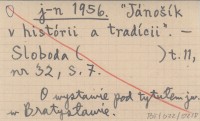 j-n 1956. "Jánošík
v histórii a tradícii". —
Sloboda ( ) t. 11,
nr 32, s. 7.
O wystawie pod tytułem jw.
w Bratysławie.